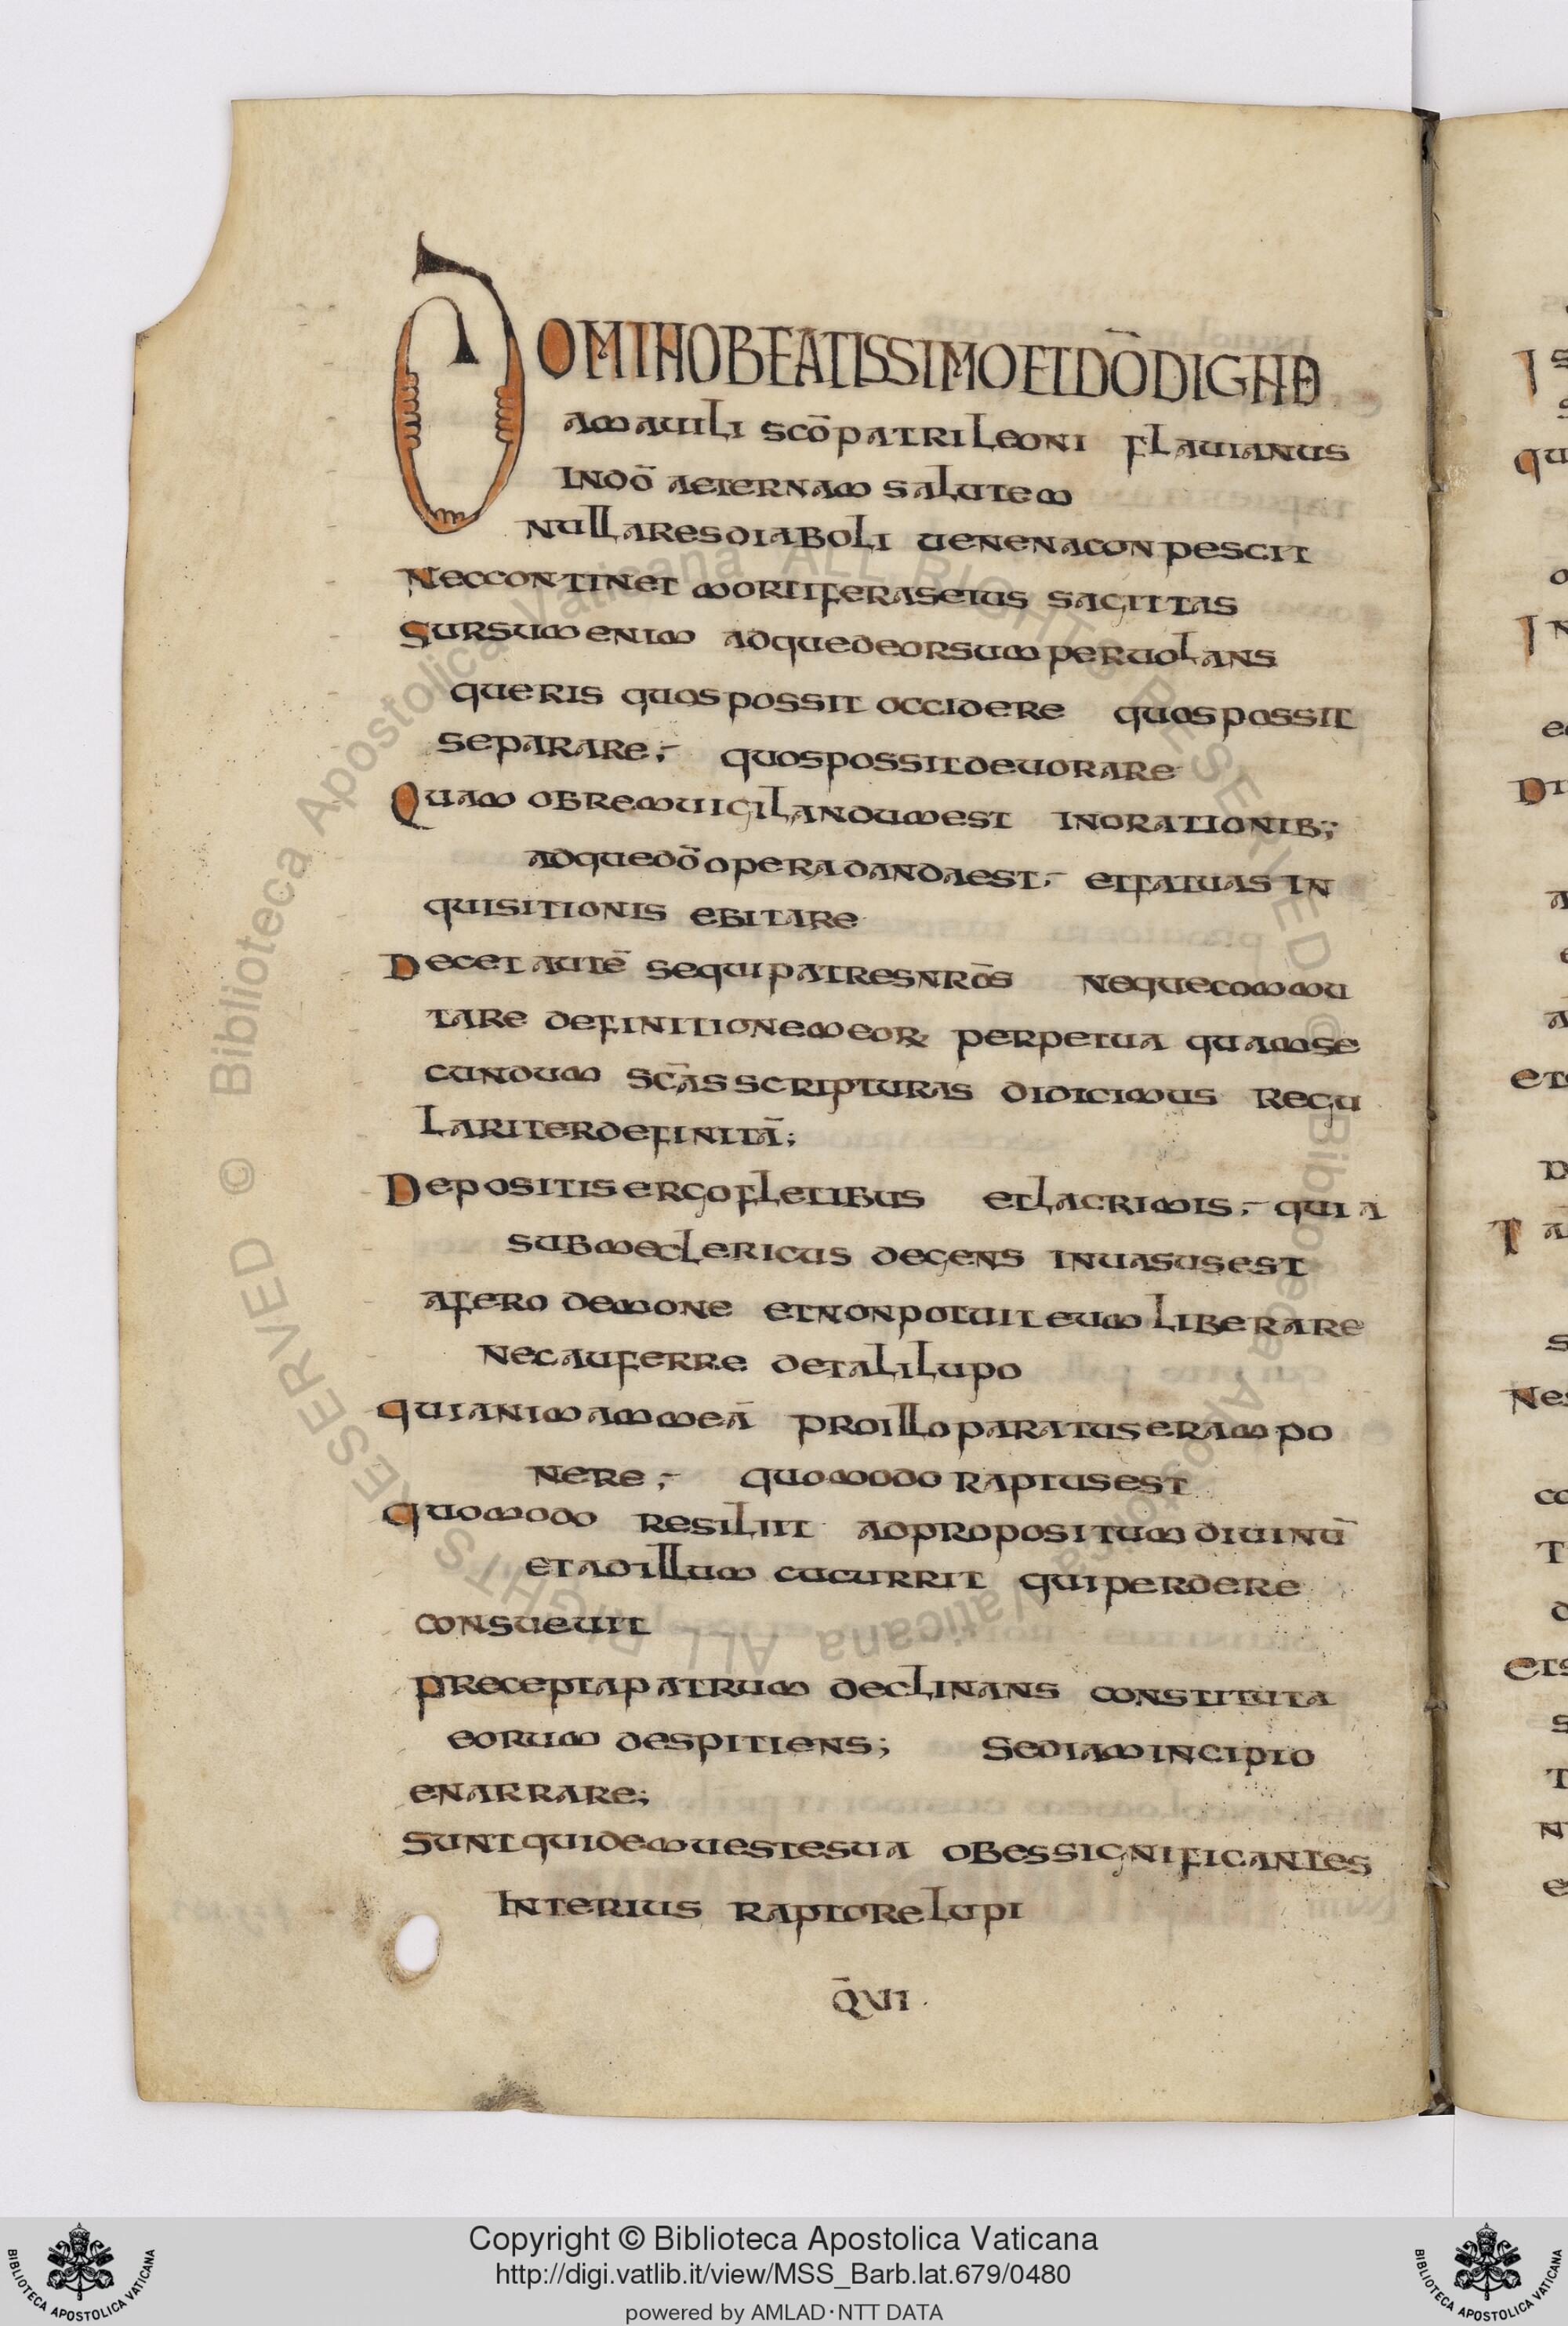 DOMINO BEATISSIMO ET DÕ DIGNO
amauili scõ patri leoni flauianus
in dõ aeternam salutem
nulla res diaboli uenena conpescit
nec continet mortiferas eius sagittas
sursum enim adque deorsum peruolans
queris quos possit occidere quos possit
separare; quos possit deuorare
Quam obrem uigilandum est in orationib;
adque dõ opera danda est; et fatuas in
quisitionis ebitare
Decet autē sequi patres nrōs neque commu
tare definitionem eoꝝ perpetua quam se
cundum scās scripturas didicimus regu
lariter definitā;
Depositis ergo fletibus et lacrimis; quia
sub me clericus degens inuasus est
a fero demone et non potui teum liberare
nec auferre de tali lupo
qui animam meā pro illo paratus eram po
nere; quomodo raptus est
quomodo resiliit ad propositum diuinū
et ad illum cucurrit qui perdere
consueuit
precepta patrum declinans constituta
eorum despitiens; sed iam incipio
enarrare;
sunt quidem ueste sua obes significantes
interius raptore lupi
Q̄ XII.
Copyright © Biblioteca Apostolica Vaticana
http://digi.vatlib.it/view/MSS_Barb.lat.679/0480
powered by AMLAD·NTT DATA
BIBLIOTECA APOSTOLICA VATICANA
BIBLIOTECA APOSTOLICA VATICANA
© Biblioteca Apostolica Vaticana ALL RIGHTS RESERVED
© Biblioteca Apostolica Vaticana ALL RIGHTS RESERVED